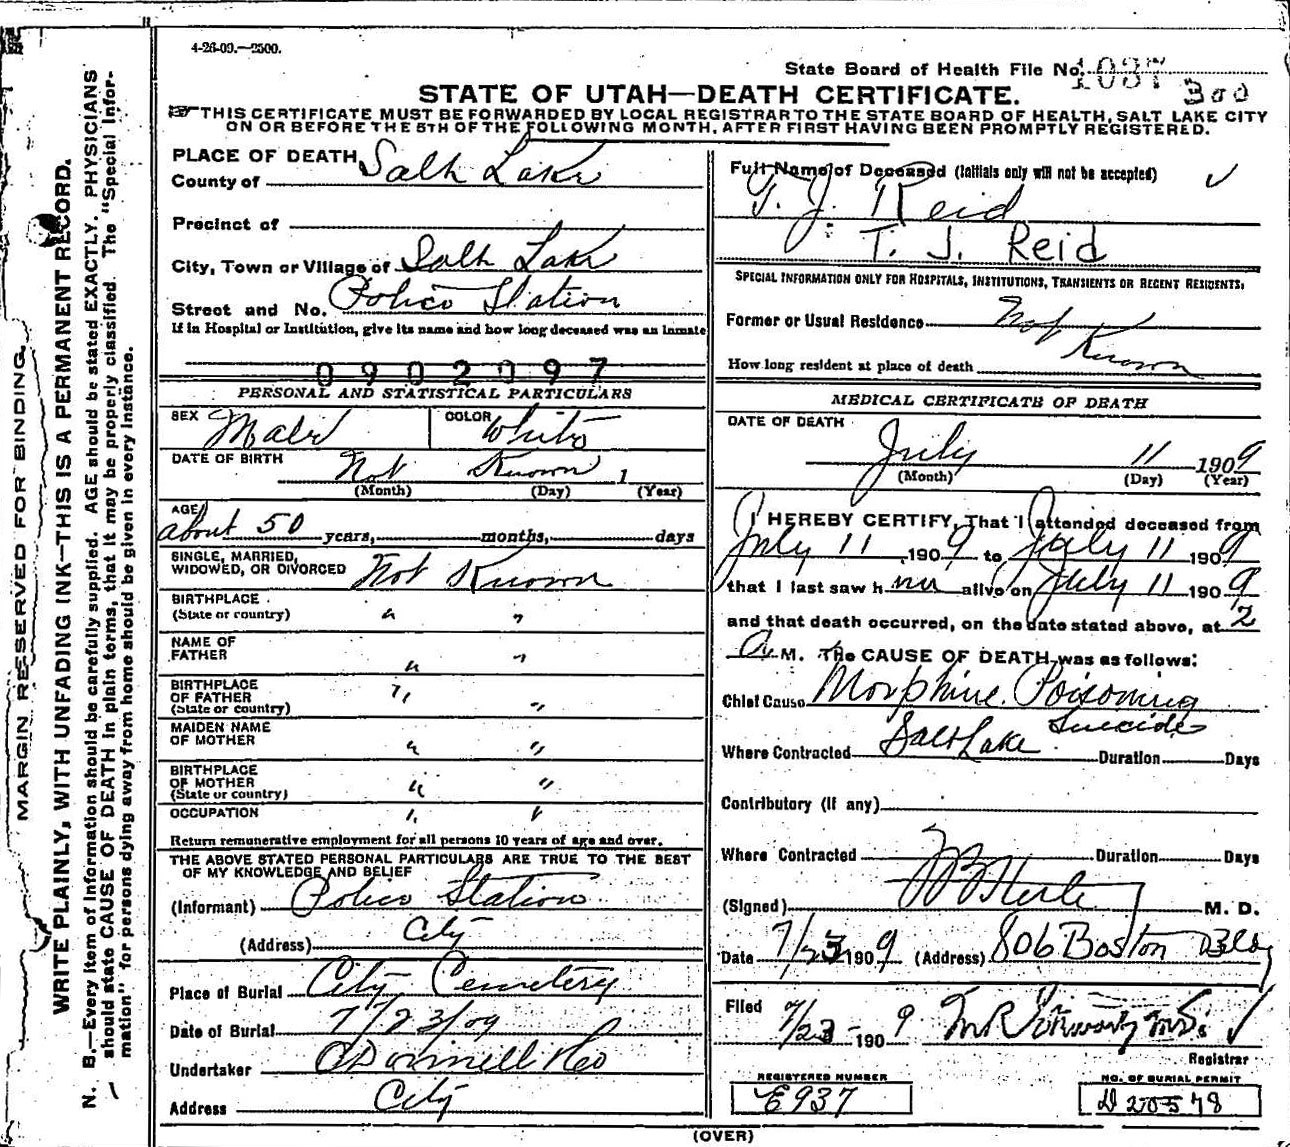 4-26-09.—2500.
State Board of Health File No. 1037
300
STATE OF UTAH—DEATH CERTIFICATE.
☞THIS CERTIFICATE MUST BE FORWARDED BY LOCAL REGISTRAR TO THE STATE BOARD OF HEALTH, SALT LAKE CITY
ON OR BEFORE THE 5TH OF THE FOLLOWING MONTH, AFTER FIRST HAVING BEEN PROMPTLY REGISTERED.
MARGIN RESERVED FOR BINDING.
WRITE PLAINLY, WITH UNFADING INK—THIS IS A PERMANENT RECORD.
N. B.—Every item of information should be carefully supplied. AGE should be stated EXACTLY. PHYSICIANS
should state CAUSE OF DEATH in plain terms, that it may be properly classified. The "Special Infor-
mation" for persons dying away from home should be given in every instance.
PLACE OF DEATH
County of Salt Lake
Precinct of
City, Town or Village of Salt Lake
Street and No. Police Station
If in Hospital or Institution, give its name and how long deceased was an inmate
0902097
PERSONAL AND STATISTICAL PARTICULARS
SEX Male COLOR White
DATE OF BIRTH Not Known 1
(Month) (Day) (Year)
AGE
about 50 years, months, days
SINGLE, MARRIED,
WIDOWED, OR DIVORCED Not Known
BIRTHPLACE
(State or country) " "
NAME OF
FATHER " "
BIRTHPLACE
OF FATHER
(State or country) " "
MAIDEN NAME
OF MOTHER " "
BIRTHPLACE
OF MOTHER
(State or country) " "
OCCUPATION " "
Return remunerative employment for all persons 10 years of age and over.
THE ABOVE STATED PERSONAL PARTICULARS ARE TRUE TO THE BEST
OF MY KNOWLEDGE AND BELIEF
(Informant) Police Station
(Address) City
Place of Burial City Cemetery
Date of Burial 7/23/09
Undertaker O'Donnell & Co
Address City
Full Name of Deceased (Initials only will not be accepted) ✓
T. J. Reid
T. J. Reid
SPECIAL INFORMATION ONLY FOR HOSPITALS, INSTITUTIONS, TRANSIENTS OR RECENT RESIDENTS.
Former or Usual Residence Not
Known
How long resident at place of death
MEDICAL CERTIFICATE OF DEATH
DATE OF DEATH
July 11 1909
(Month) (Day) (Year)
I HEREBY CERTIFY, That I attended deceased from
July 11 1909 to July 11 1909
that I last saw him alive on July 11 1909
and that death occurred, on the date stated above, at 2
A. M. The CAUSE OF DEATH was as follows:
Chief Cause Morphine Poisoning
Suicide
Where Contracted Salt Lake Duration Days
Contributory (if any)
Where Contracted Duration Days
(Signed) M. D.
Date 7/23 1909 (Address) 806 Boston Bldg
Filed 7/23-1909 ✓
Registrar
REGISTERED NUMBER
E937
NO. OF BURIAL PERMIT
D 20578
(OVER)